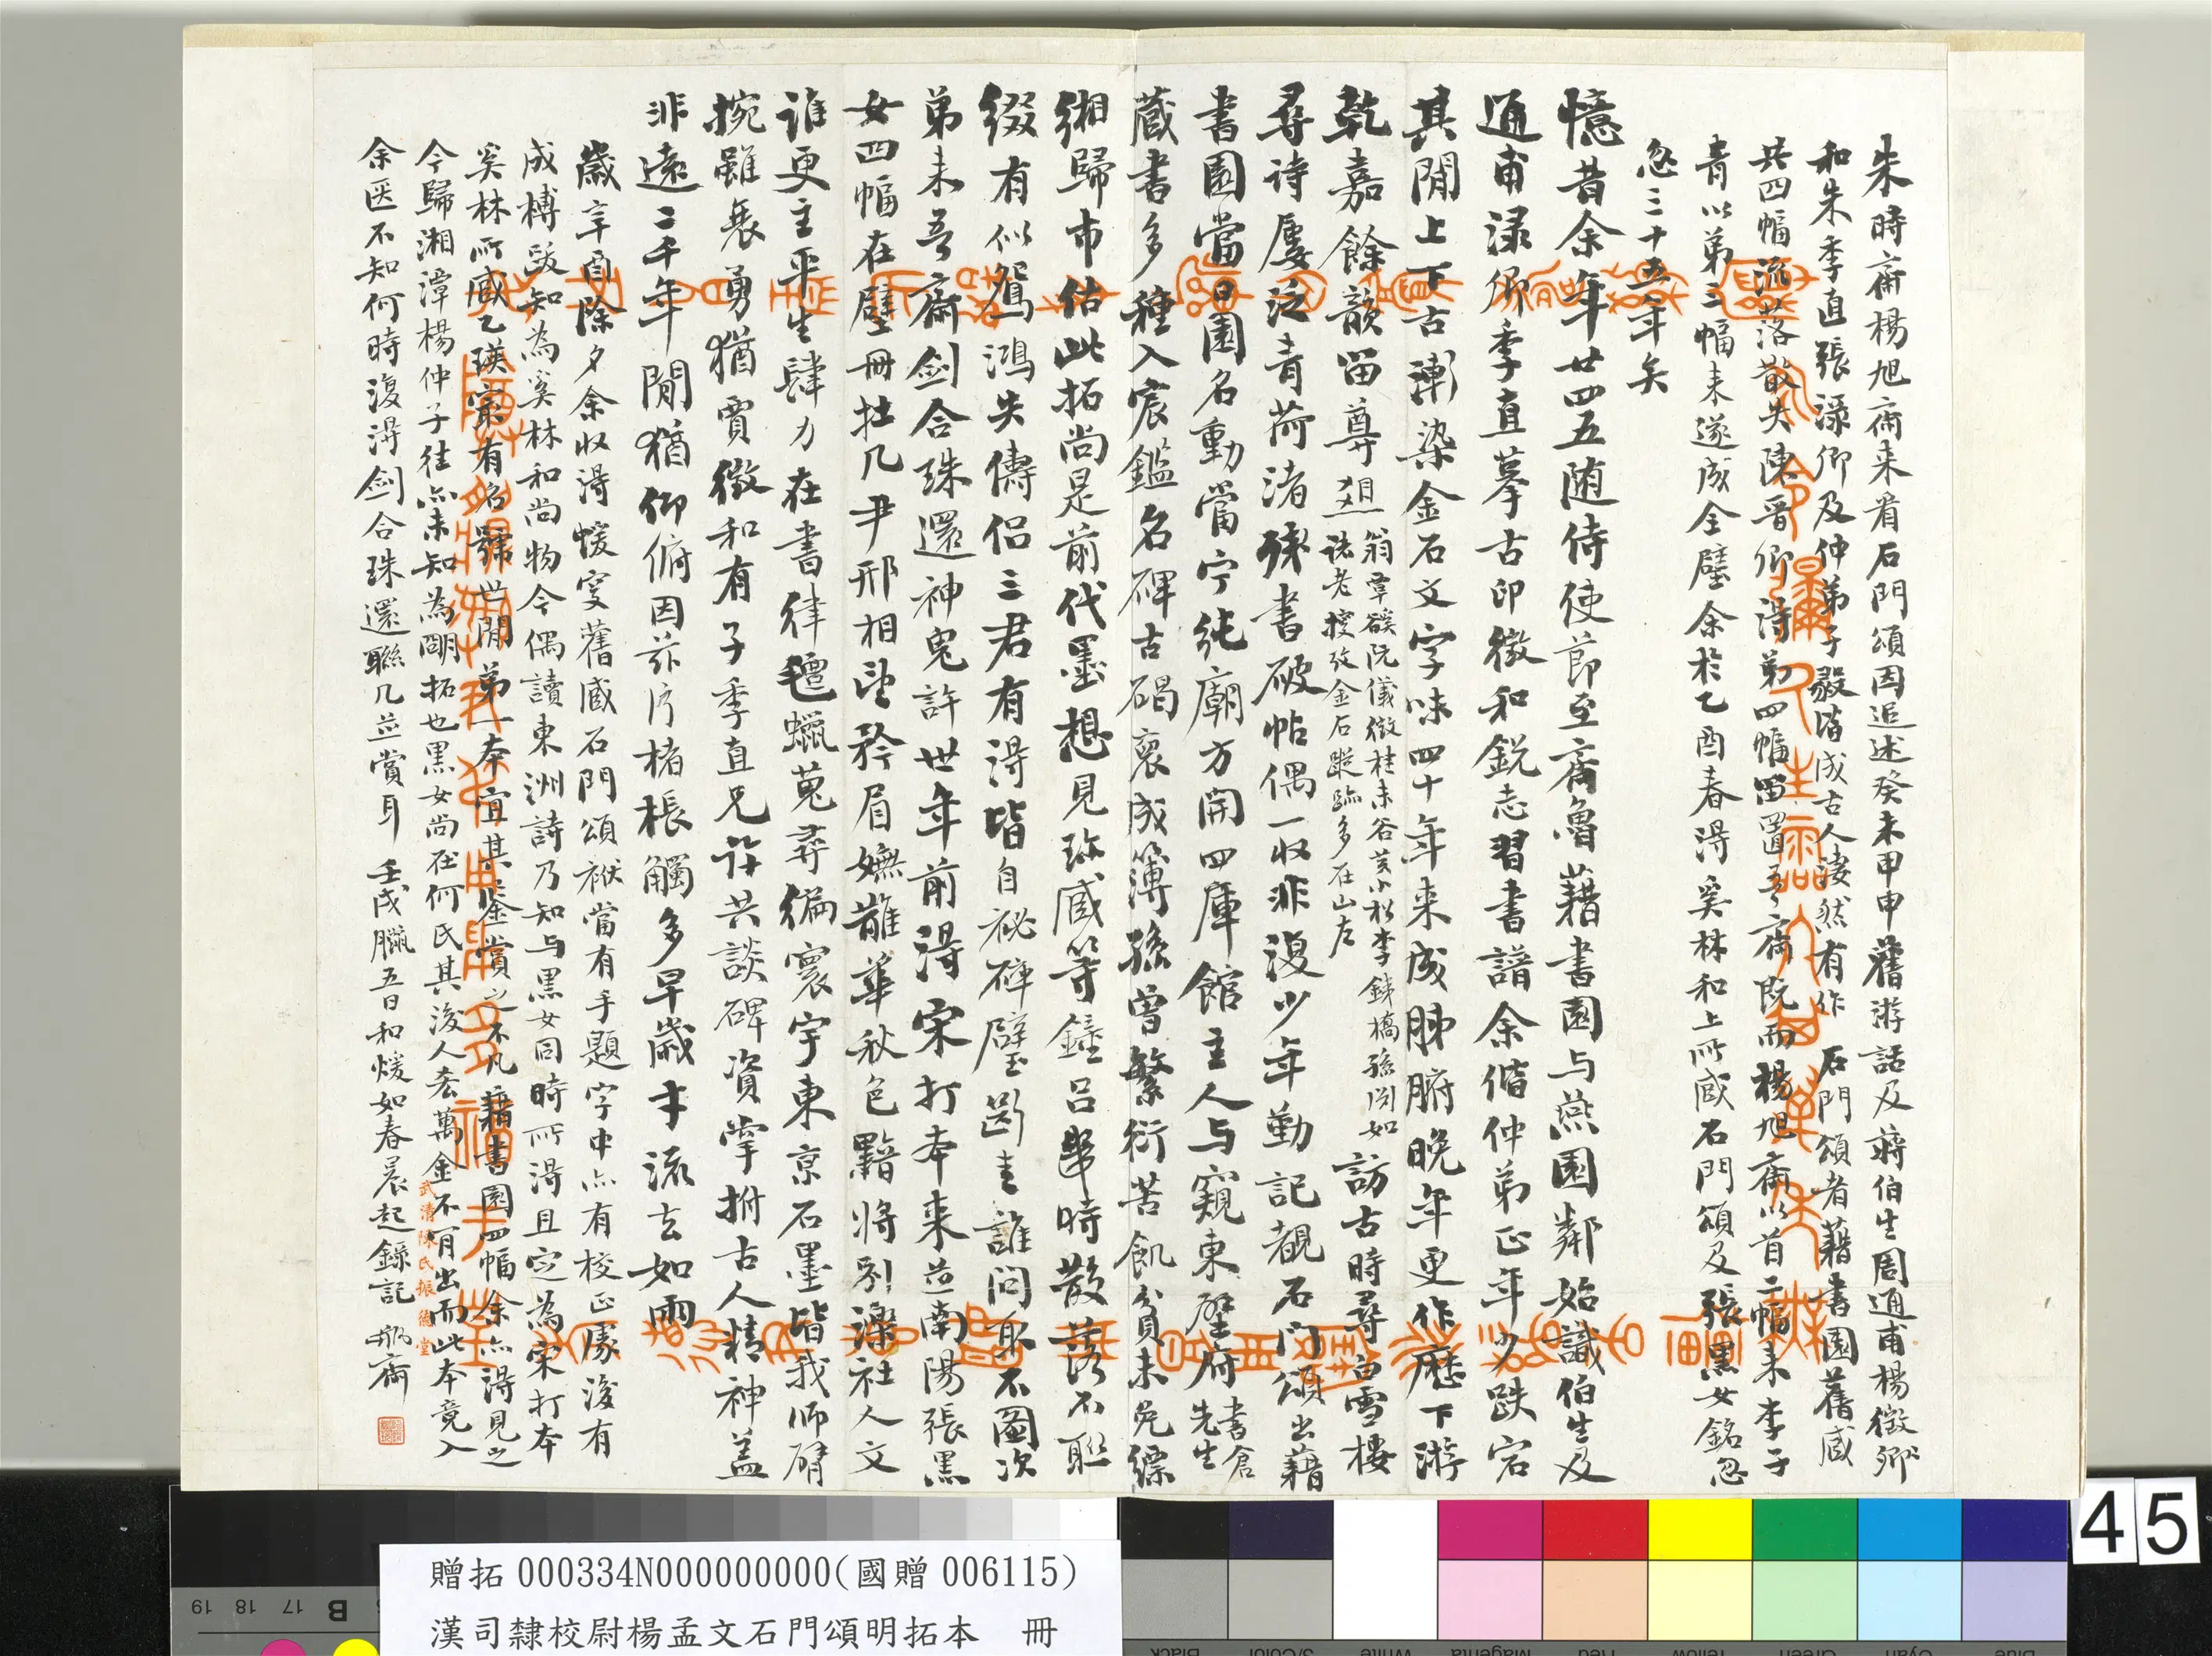 朱時齋楊旭齋來看石門頌因追述癸未甲申舊游話及蔣伯生周通甫楊徵卿
和朱季直張渌卿及仲弟子毅皆成古人淒然有作 石門頌者藉書園舊藏
共四幅流落散失陳晉卿得第四幅留置吾齋既而楊旭齋以首二幅來李子
青以第三幅來遂成全璧余於乙酉春得奚林和上所藏石門頌及張黑女銘忽
忽三十五年矣
憶昔余年廿四五随侍使節至齊魯藉書園与燕園鄰始識伯生及
通甫渌卿季直摹古印徵和銳志習書譜余偕仲弟正年少跌宕
其閒上下古漸染金石文字味四十年來成肺腑晚年更作歷下游
乾嘉餘韻留尊
翁覃谿阮儀徵桂未谷黃小松李鐵橋孫淵如
諸老搜攷金石蹤跡多在山左
訪古時尋白雪樓
尋詩屢泛青荷渚殘書破帖偶一收非復少年勤記覩石门頌出藉
書園當日園名動當宁純廟方開四庫館主人与窺東壁府
書倉
先生
藏書多種入宸鑑名碑古碣裒成簿孫曾繁衍苦飢貧未免縹
緗歸市估此拓尚是前代墨想見珎藏等鐘呂舉時散落不聯
綴有似鴛鴻失儔侶三君有得皆自祕碑璧斷圭誰問取不圖次
弟來吾齋剑合珠還神鬼許廿年前得宋打本來並南陽張黑
女四幅在壁冊拄几尹邢相望矜眉嫵嶽華秋色黯將別濼社人文
誰更主平生肆力在書律氊蠟蒐尋徧寰宇東京石墨皆我師臂
捥雖衰勇猶賈徵和有子季直兄許共談碑資掌拊古人精神蓋
非遠二千年閒猶仰俯因茲片楮棖觸多早歲才流去如雨
歲辛酉除夕余收得蝯叟舊藏石門頌袱當有手題字中亦有校正處後有
成榑跋知為奚林和尚物今偶讀東洲詩乃知与黑女同時所得且定為宋打本
奚林所藏乙瑛最有名號世閒第一本宜其鉴賞之不凡藉書園四幅余亦得見之
今歸湘潭楊仲子往亦未知為明拓也黑女尚在何氏其後人索萬金不肯出而此本竟入
余医不知何時復得劍合珠還聯几並賞耳 壬戌臘五日和煖如春晨起錄記 瓶齋
武清陳氏振德堂
贈拓 000334N000000000(國贈 006115)
漢司隸校尉楊孟文石門頌明拓本 冊
45
19 18 17 B
Black 3/Color White Magenta Red Yellow Green Cyan Blue